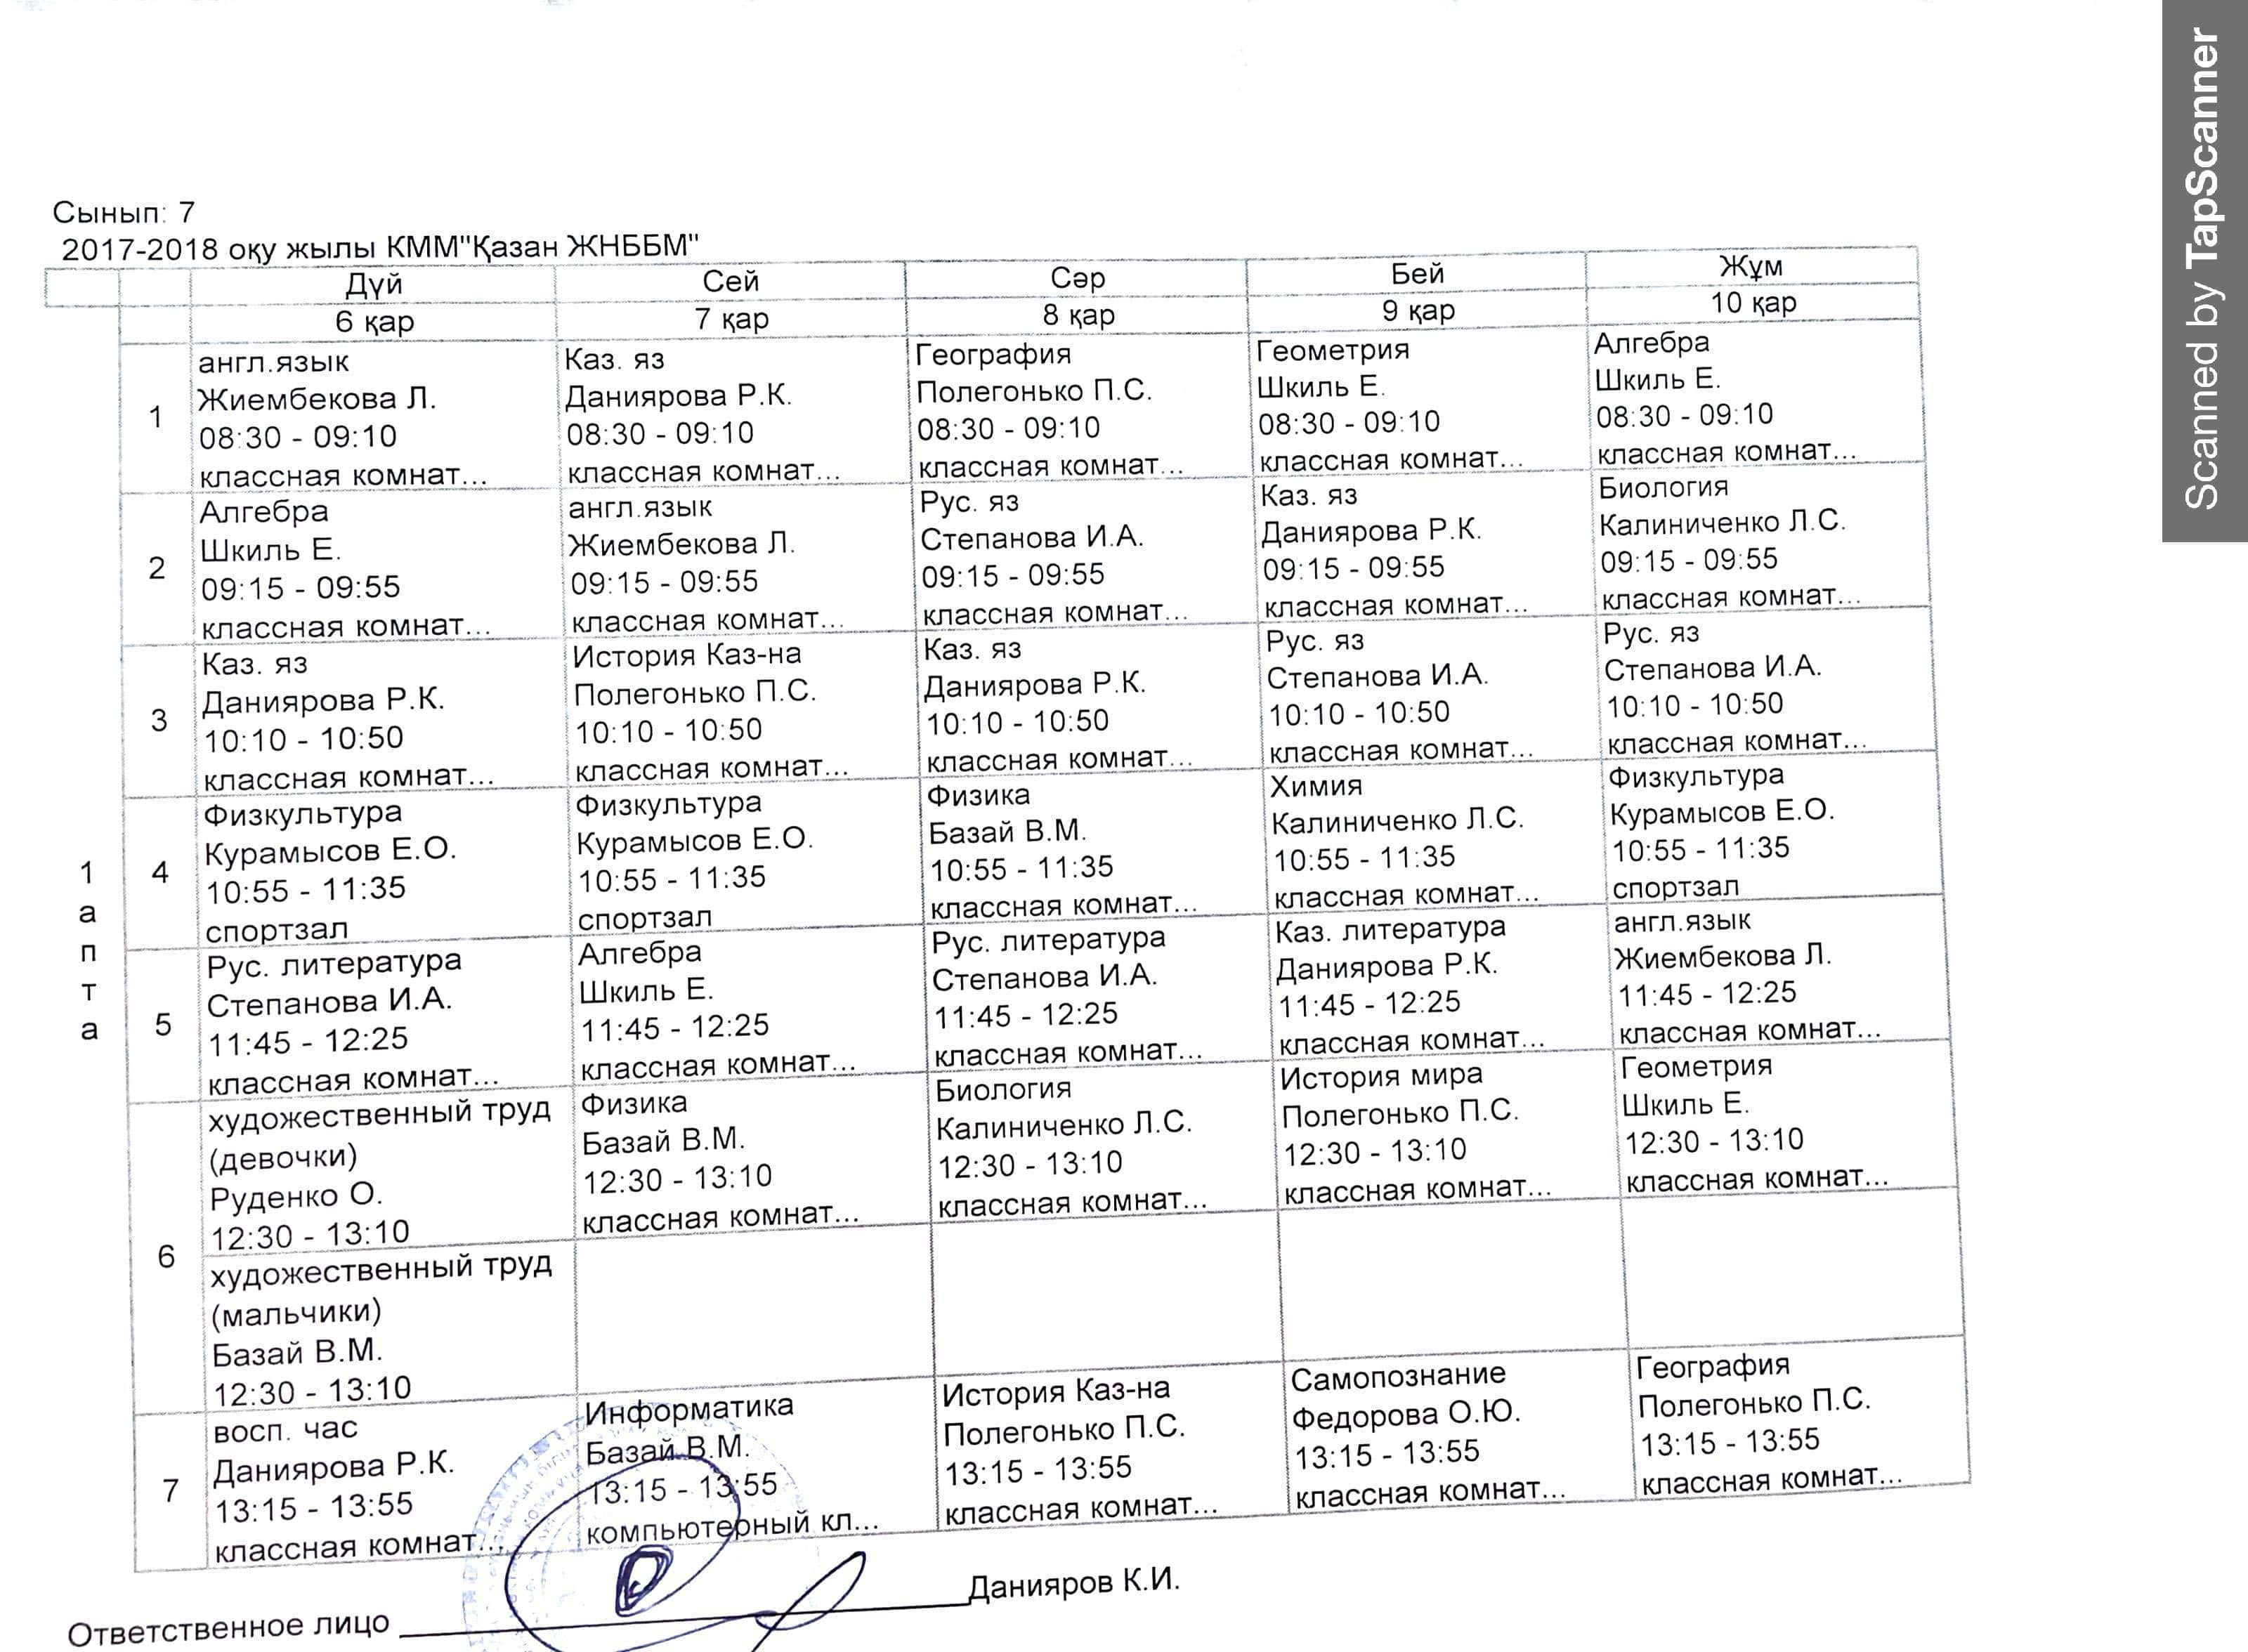 Сынып: 7
2017-2018 оқу жылы КММ"Қазан ЖНББМ"
Дүй Сей Сәр Бей Жұм
6 қар 7 қар 8 қар 9 қар 10 қар
1 апта
1
англ.язык
Жиембекова Л.
08:30 - 09:10
классная комнат...
Каз. яз
Даниярова Р.К.
08:30 - 09:10
классная комнат...
География
Полегонько П.С.
08:30 - 09:10
классная комнат...
Геометрия
Шкиль Е.
08:30 - 09:10
классная комнат...
Алгебра
Шкиль Е.
08:30 - 09:10
классная комнат...
2
Алгебра
Шкиль Е.
09:15 - 09:55
классная комнат...
англ.язык
Жиембекова Л.
09:15 - 09:55
классная комнат...
Рус. яз
Степанова И.А.
09:15 - 09:55
классная комнат...
Каз. яз
Даниярова Р.К.
09:15 - 09:55
классная комнат...
Биология
Калиниченко Л.С.
09:15 - 09:55
классная комнат...
3
Каз. яз
Даниярова Р.К.
10:10 - 10:50
классная комнат...
История Каз-на
Полегонько П.С.
10:10 - 10:50
классная комнат...
Каз. яз
Даниярова Р.К.
10:10 - 10:50
классная комнат...
Рус. яз
Степанова И.А.
10:10 - 10:50
классная комнат...
Рус. яз
Степанова И.А.
10:10 - 10:50
классная комнат...
4
Физкультура
Курамысов Е.О.
10:55 - 11:35
спортзал
Физкультура
Курамысов Е.О.
10:55 - 11:35
спортзал
Физика
Базай В.М.
10:55 - 11:35
классная комнат...
Химия
Калиниченко Л.С.
10:55 - 11:35
классная комнат...
Физкультура
Курамысов Е.О.
10:55 - 11:35
спортзал
5
Рус. литература
Степанова И.А.
11:45 - 12:25
классная комнат...
Алгебра
Шкиль Е.
11:45 - 12:25
классная комнат...
Рус. литература
Степанова И.А.
11:45 - 12:25
классная комнат...
Каз. литература
Даниярова Р.К.
11:45 - 12:25
классная комнат...
англ.язык
Жиембекова Л.
11:45 - 12:25
классная комнат...
6
художественный труд
(девочки)
Руденко О.
12:30 - 13:10
художественный труд
(мальчики)
Базай В.М.
12:30 - 13:10
Физика
Базай В.М.
12:30 - 13:10
классная комнат...
Биология
Калиниченко Л.С.
12:30 - 13:10
классная комнат...
История мира
Полегонько П.С.
12:30 - 13:10
классная комнат...
Геометрия
Шкиль Е.
12:30 - 13:10
классная комнат...
7
восп. час
Даниярова Р.К.
13:15 - 13:55
классная комнат...
Информатика
Базай В.М.
13:15 - 13:55
компьютерный кл...
История Каз-на
Полегонько П.С.
13:15 - 13:55
классная комнат...
Самопознание
Федорова О.Ю.
13:15 - 13:55
классная комнат...
География
Полегонько П.С.
13:15 - 13:55
классная комнат...
Ответственное лицо Данияров К.И.
Scanned by TapScanner